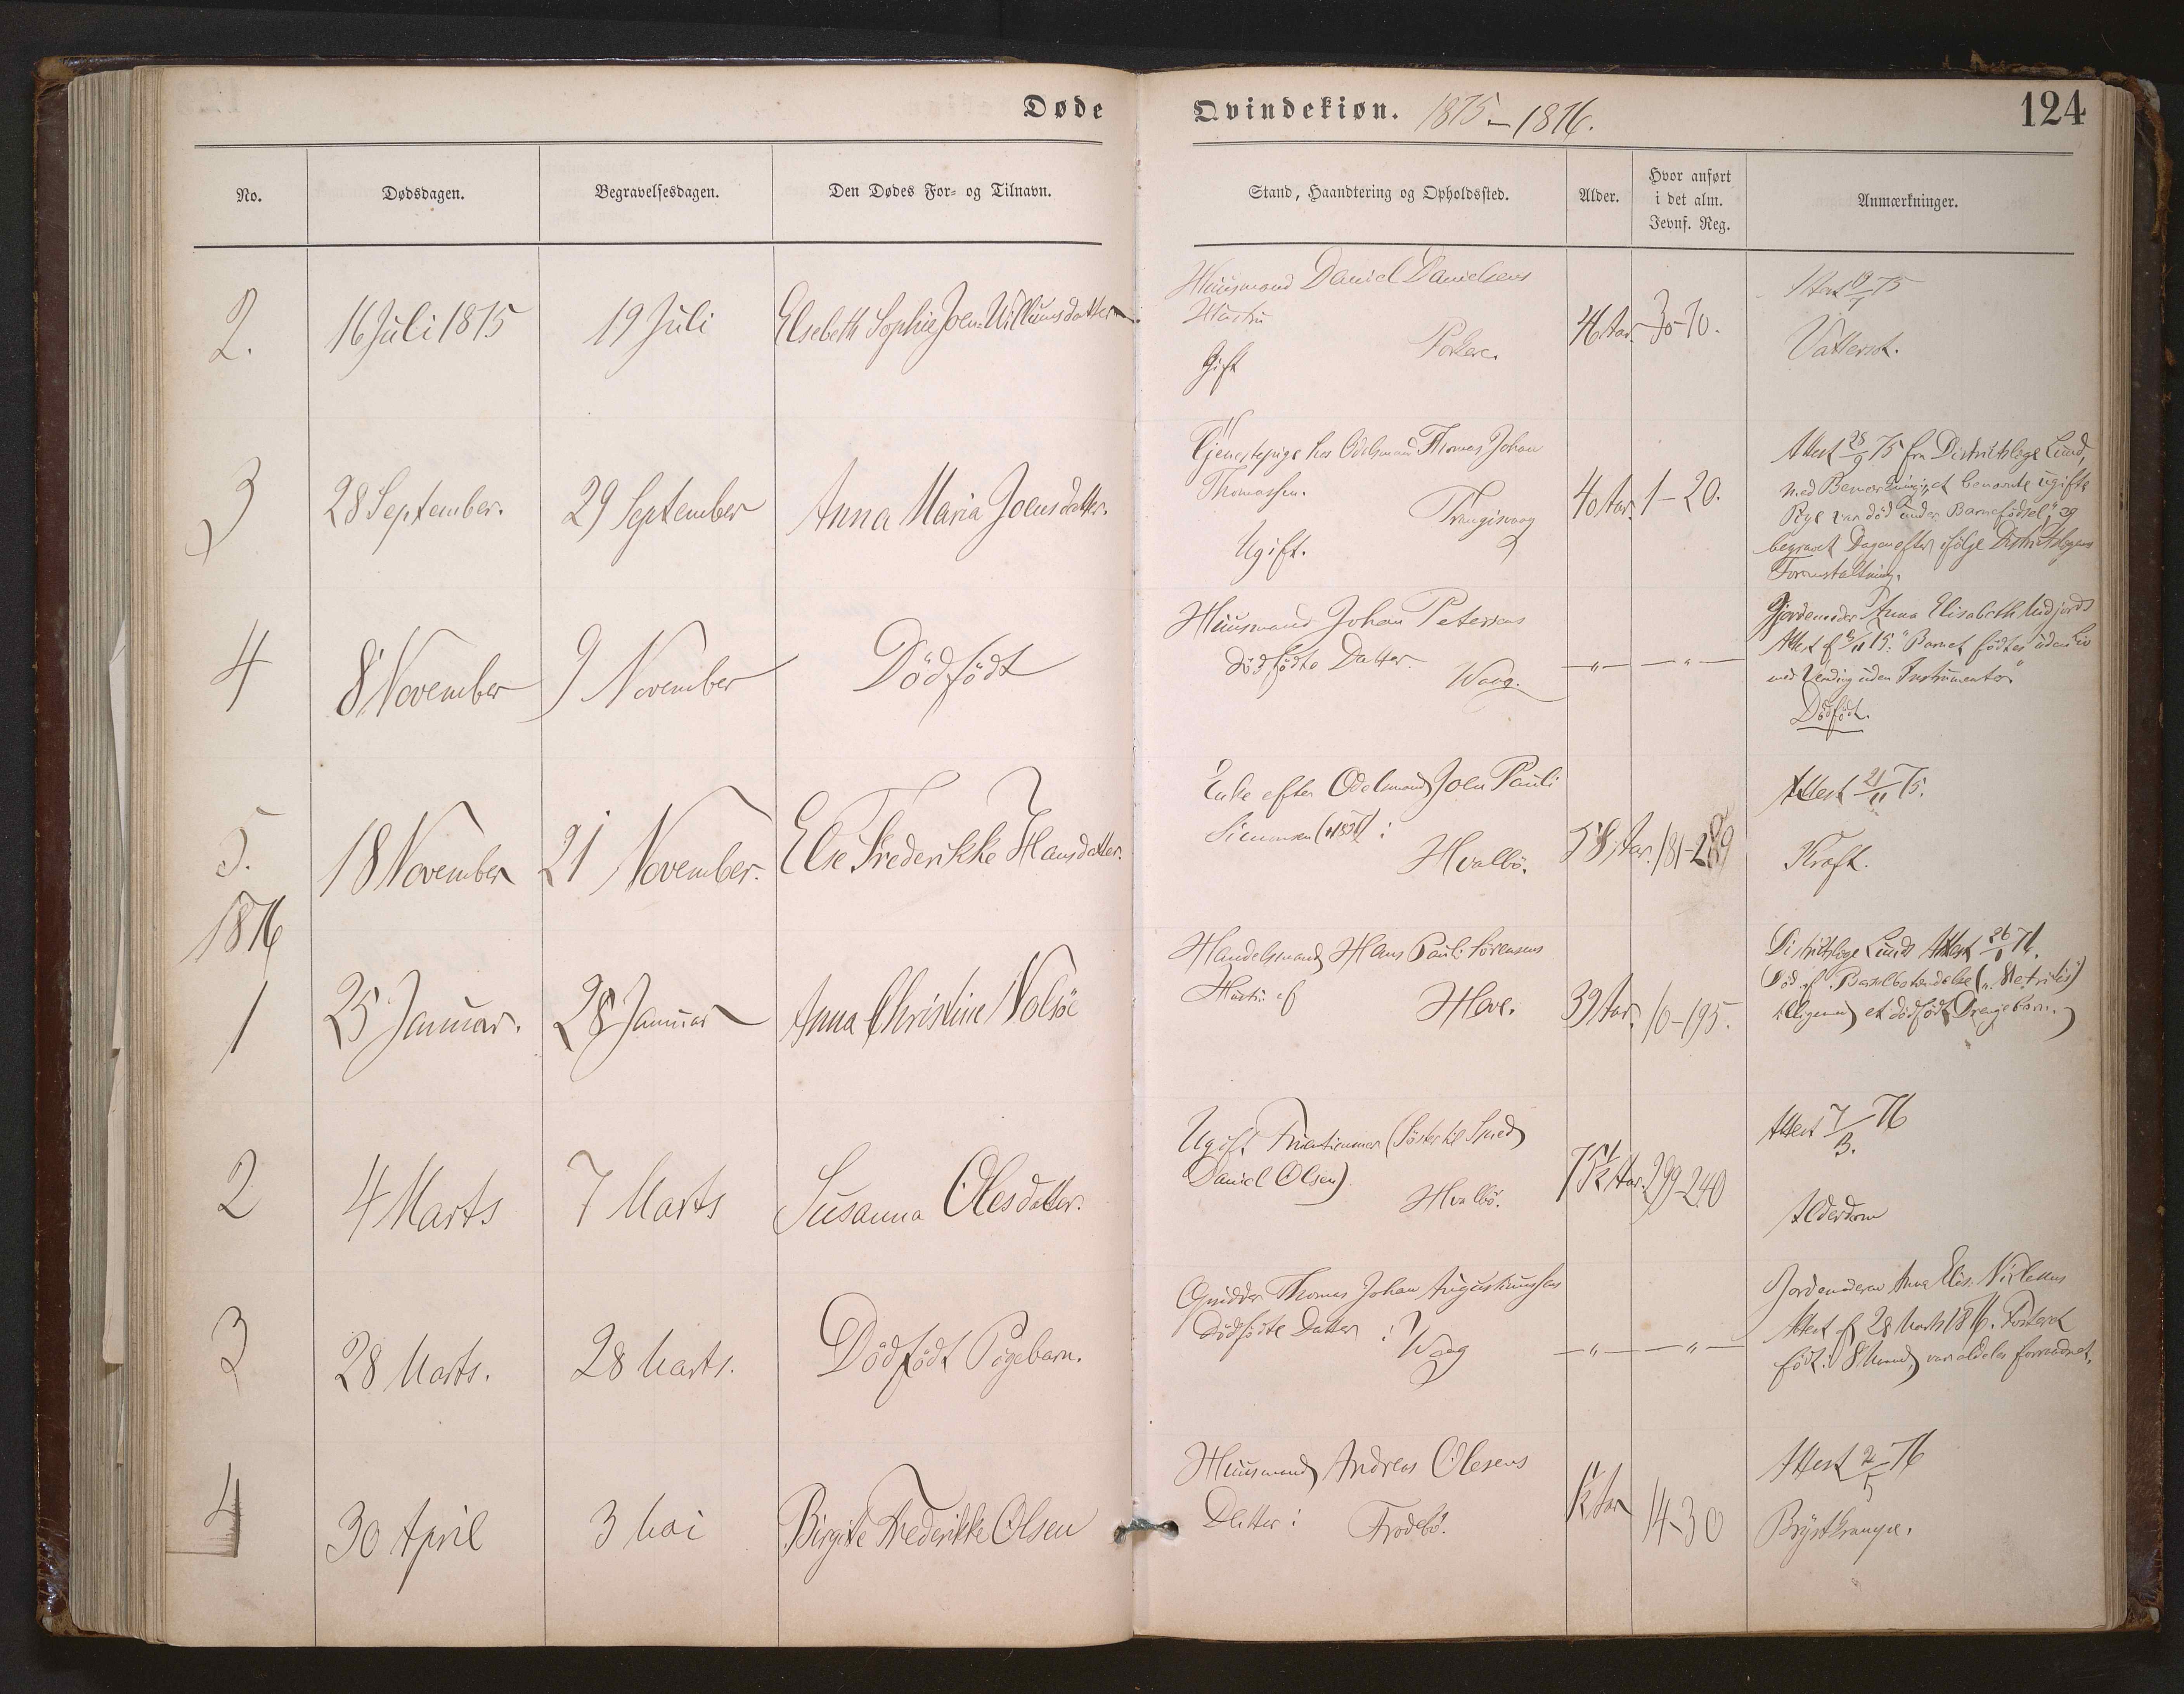 Døde Qvindekiøn. 1875–1876. 124
No. Dødsdagen. Begravelsesdagen. Den Dødes For- og Tilnavn. Stand, Haandtering og Opholdssted. Alder. Hvor anført i det alm. Jevnf. Reg. Anmærkninger.
2. 16 Juli 1875 19 Juli Elsebeth Sophie Joen-Willumsdatter
Huusmand Daniel Danielsens
Hustru
Porkere.
Gift
46 Aar. 30-70.
Attest 19/7 75
Vattersot.
3 28 September. 29 September Anna Maria Joensdatter.
Tjenestepige hos Odelsmand Thomas Johan
Thomassen.
Trangisvaag
Ugift.
40 Aar. 1-20.
Attest 28/9 75 fra Districtslæge Lund,
med Bemærkning, at benævnte ugifte
Pige var død under Barnefødsel", og
begravet Dagen efter ifølge Districtslægens
Foranstaltning.
4 8 November 9 November Dødfødt
Huusmand Johan Petersens
dødfødte Datter.
Waag.
— " — — " —
Gjordemoder Anna Elisabeth Midjords
Attest af 8/11 75: "Barnet fødtes uden Liv
ved Vending uden Instrumenter"
Dødfødt.
5. 18 November 21 November. Else Frederikke Hansdatter.
Enke efter Odelsmand Joen Pauli
Simonsen i
Hvalbø.
58 Aar. 181-289
Attest 21/11 75.
Kræft.
1876
1 25 Januar. 28 Januar Anna Christine Nolsøe
Handelsmand Hans Pauli Sørensens
Hustru af
Hove.
39 Aar. 10-195.
Districtslæge Lunds Attest 26/1 76.
Død af Barselbetændelse ("Metritis")
tilligemed et dødfødt Drengebarn.
2 4 Marts 7 Marts Susanna Olesdatter.
Ugift Fruentimmer (Søster til Smed
Daniel Olsen).
Hvalbø.
75½ Aar. 299-240
Attest 7/3. 76
Alderdom
3 28 Marts. 28 Marts. Dødfødt Pigebarn.
Opsidder Thomas Johan Augustinussens
dødfødte Datter i
Waag
— " — — " —
Jordemoderen Anna Elis.
Attest af 28 Marts 1876. Fosteret
født i 8 Maaned, var aldeles forraadnet.
4 30 April 3 Mai Birgitte Frederikke Olsen
Huusmand Andreas Olesens
Datter i
Frodebø.
½ Aar 14-30
Attest 2/5 76
Brystkrampe.